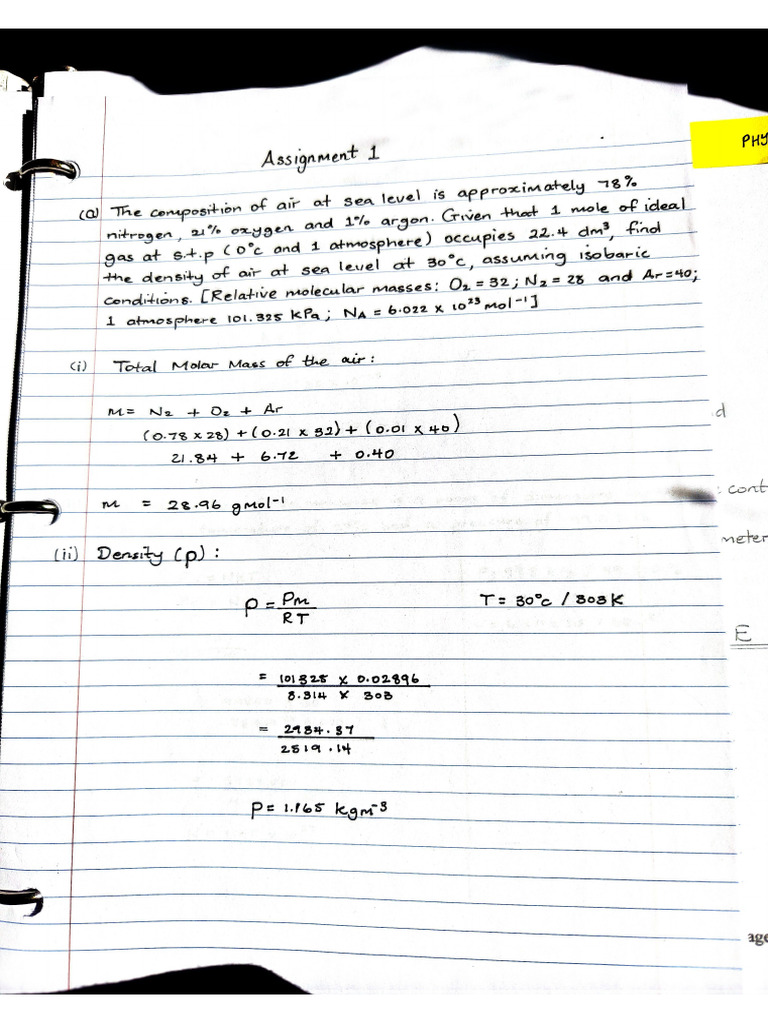 Assignment 1
PHY
(a) The composition of air at sea level is approximately 78%
nitrogen, 21% oxygen and 1% argon. Given that 1 mole of ideal
gas at s.t.p (0°c and 1 atmosphere) occupies 22.4 dm³, find
the density of air at sea level at 30°c, assuming isobaric
conditions. [Relative molecular masses: O₂ = 32; N₂ = 28 and Ar = 40;
1 atmosphere 101.325 kPa; NA = 6.022 x 10²³ mol⁻¹]
(i) Total Molar Mass of the air:
M = N₂ + O₂ + Ar
(0.78 x 28) + (0.21 x 32) + (0.01 x 40)
21.84 + 6.72 + 0.40
m = 28.96 gmol⁻¹
(ii) Density (ρ):
ρ = PM / RT
T = 30°c / 303K
= 101325 x 0.02896 / 8.314 x 303
= 2934.37 / 2519.14
ρ = 1.165 kgm⁻³
d
: cont
meter
E
age